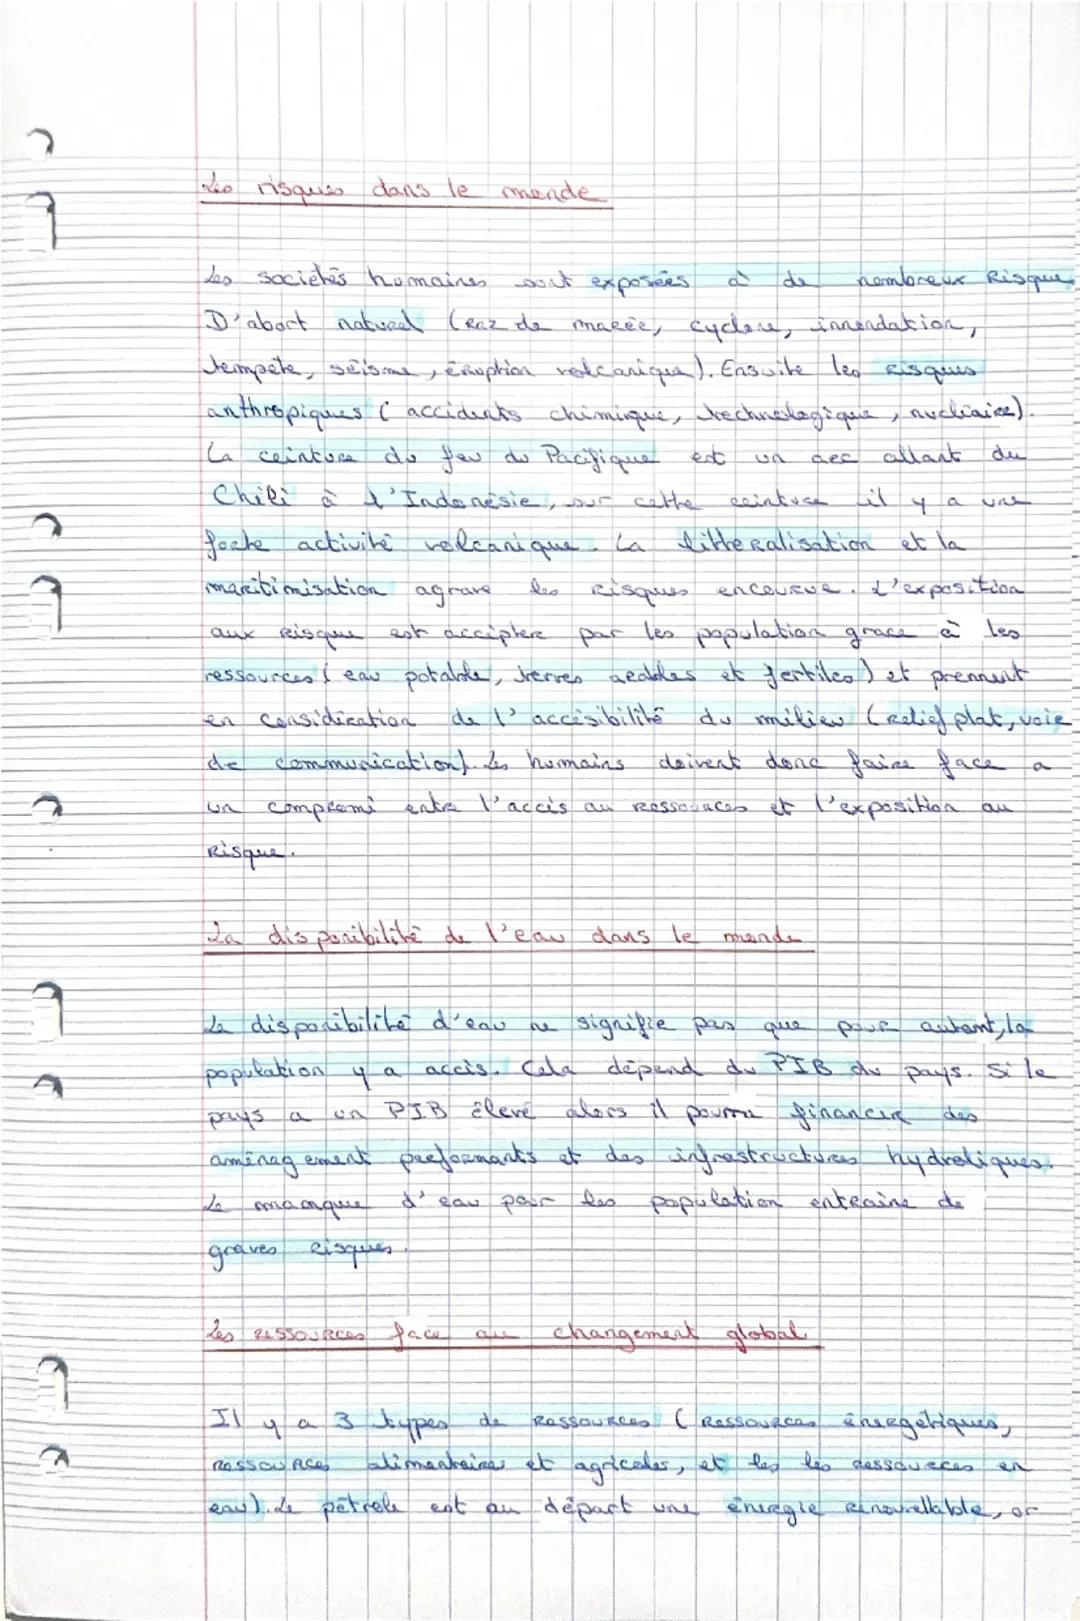 Les risques dans le monde
Les sociétés humaines sont exposées à de nombreux Risque
D'abort naturel (Raz de marée, cyclone, innondation,
tempête, séisme, éruption volcanique). Ensuite les risques
anthropiques (accidents chimique, technologique, nucléaire).
La ceinture du feu du Pacifique est un arc allant du
Chili à l'Indonésie, sur cette ceinture il y a une
forte activité volcanique. La littoralisation et la
maritimisation agrave les risques encourue. L'exposition
aux risque est acceptere par les population grace à les
ressources (eau potable, terres arables et fertiles) et prennent
en considération de l'accésibilité du milieu (Relief plat, voie
de communication). Les humains doivent donc faire face a
un compromi entre l'accès au ressources et l'exposition au
risque.
La disponibilité de l'eau dans le monde
La disponibilité d'eau ne signifie pas que pour autant, la
population y a accès. Cela dépend du PIB du pays. Si le
pays a un PIB élevé alors il pourra financer des
aménagement performants et des infrastructures hydroliques.
Le maanque d'eau pour les population entraine de
graves risques.
Les ressources face au changement global
Il y a 3 types de Ressources (Ressources énergétiques,
ressources alimentaires et agricoles, et les les ressources en
eau). Le pétrole est au départ une énergie renouvellable, or